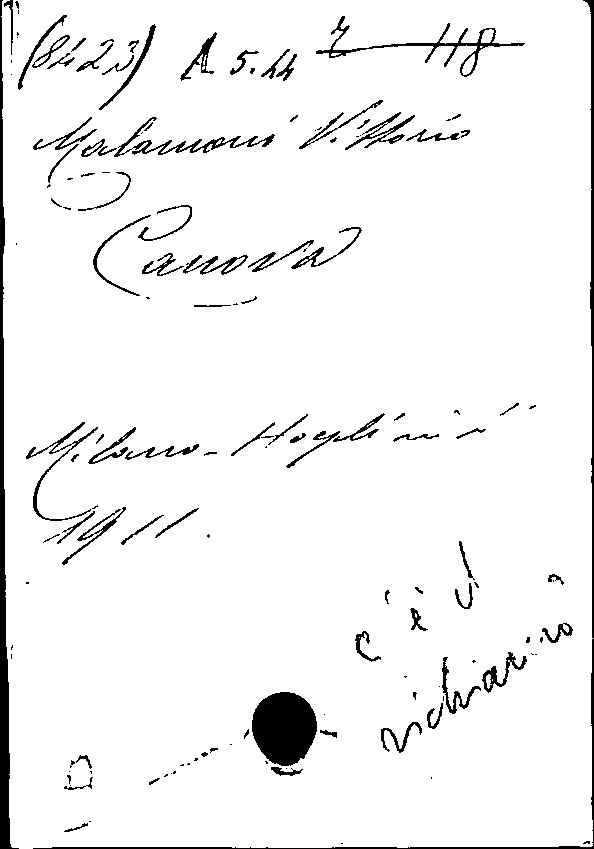 (8423) A 5.44 Z 118
Malamani Vittorio
Canova
Milano - Hoepli
1911.
c'è il
richiamo